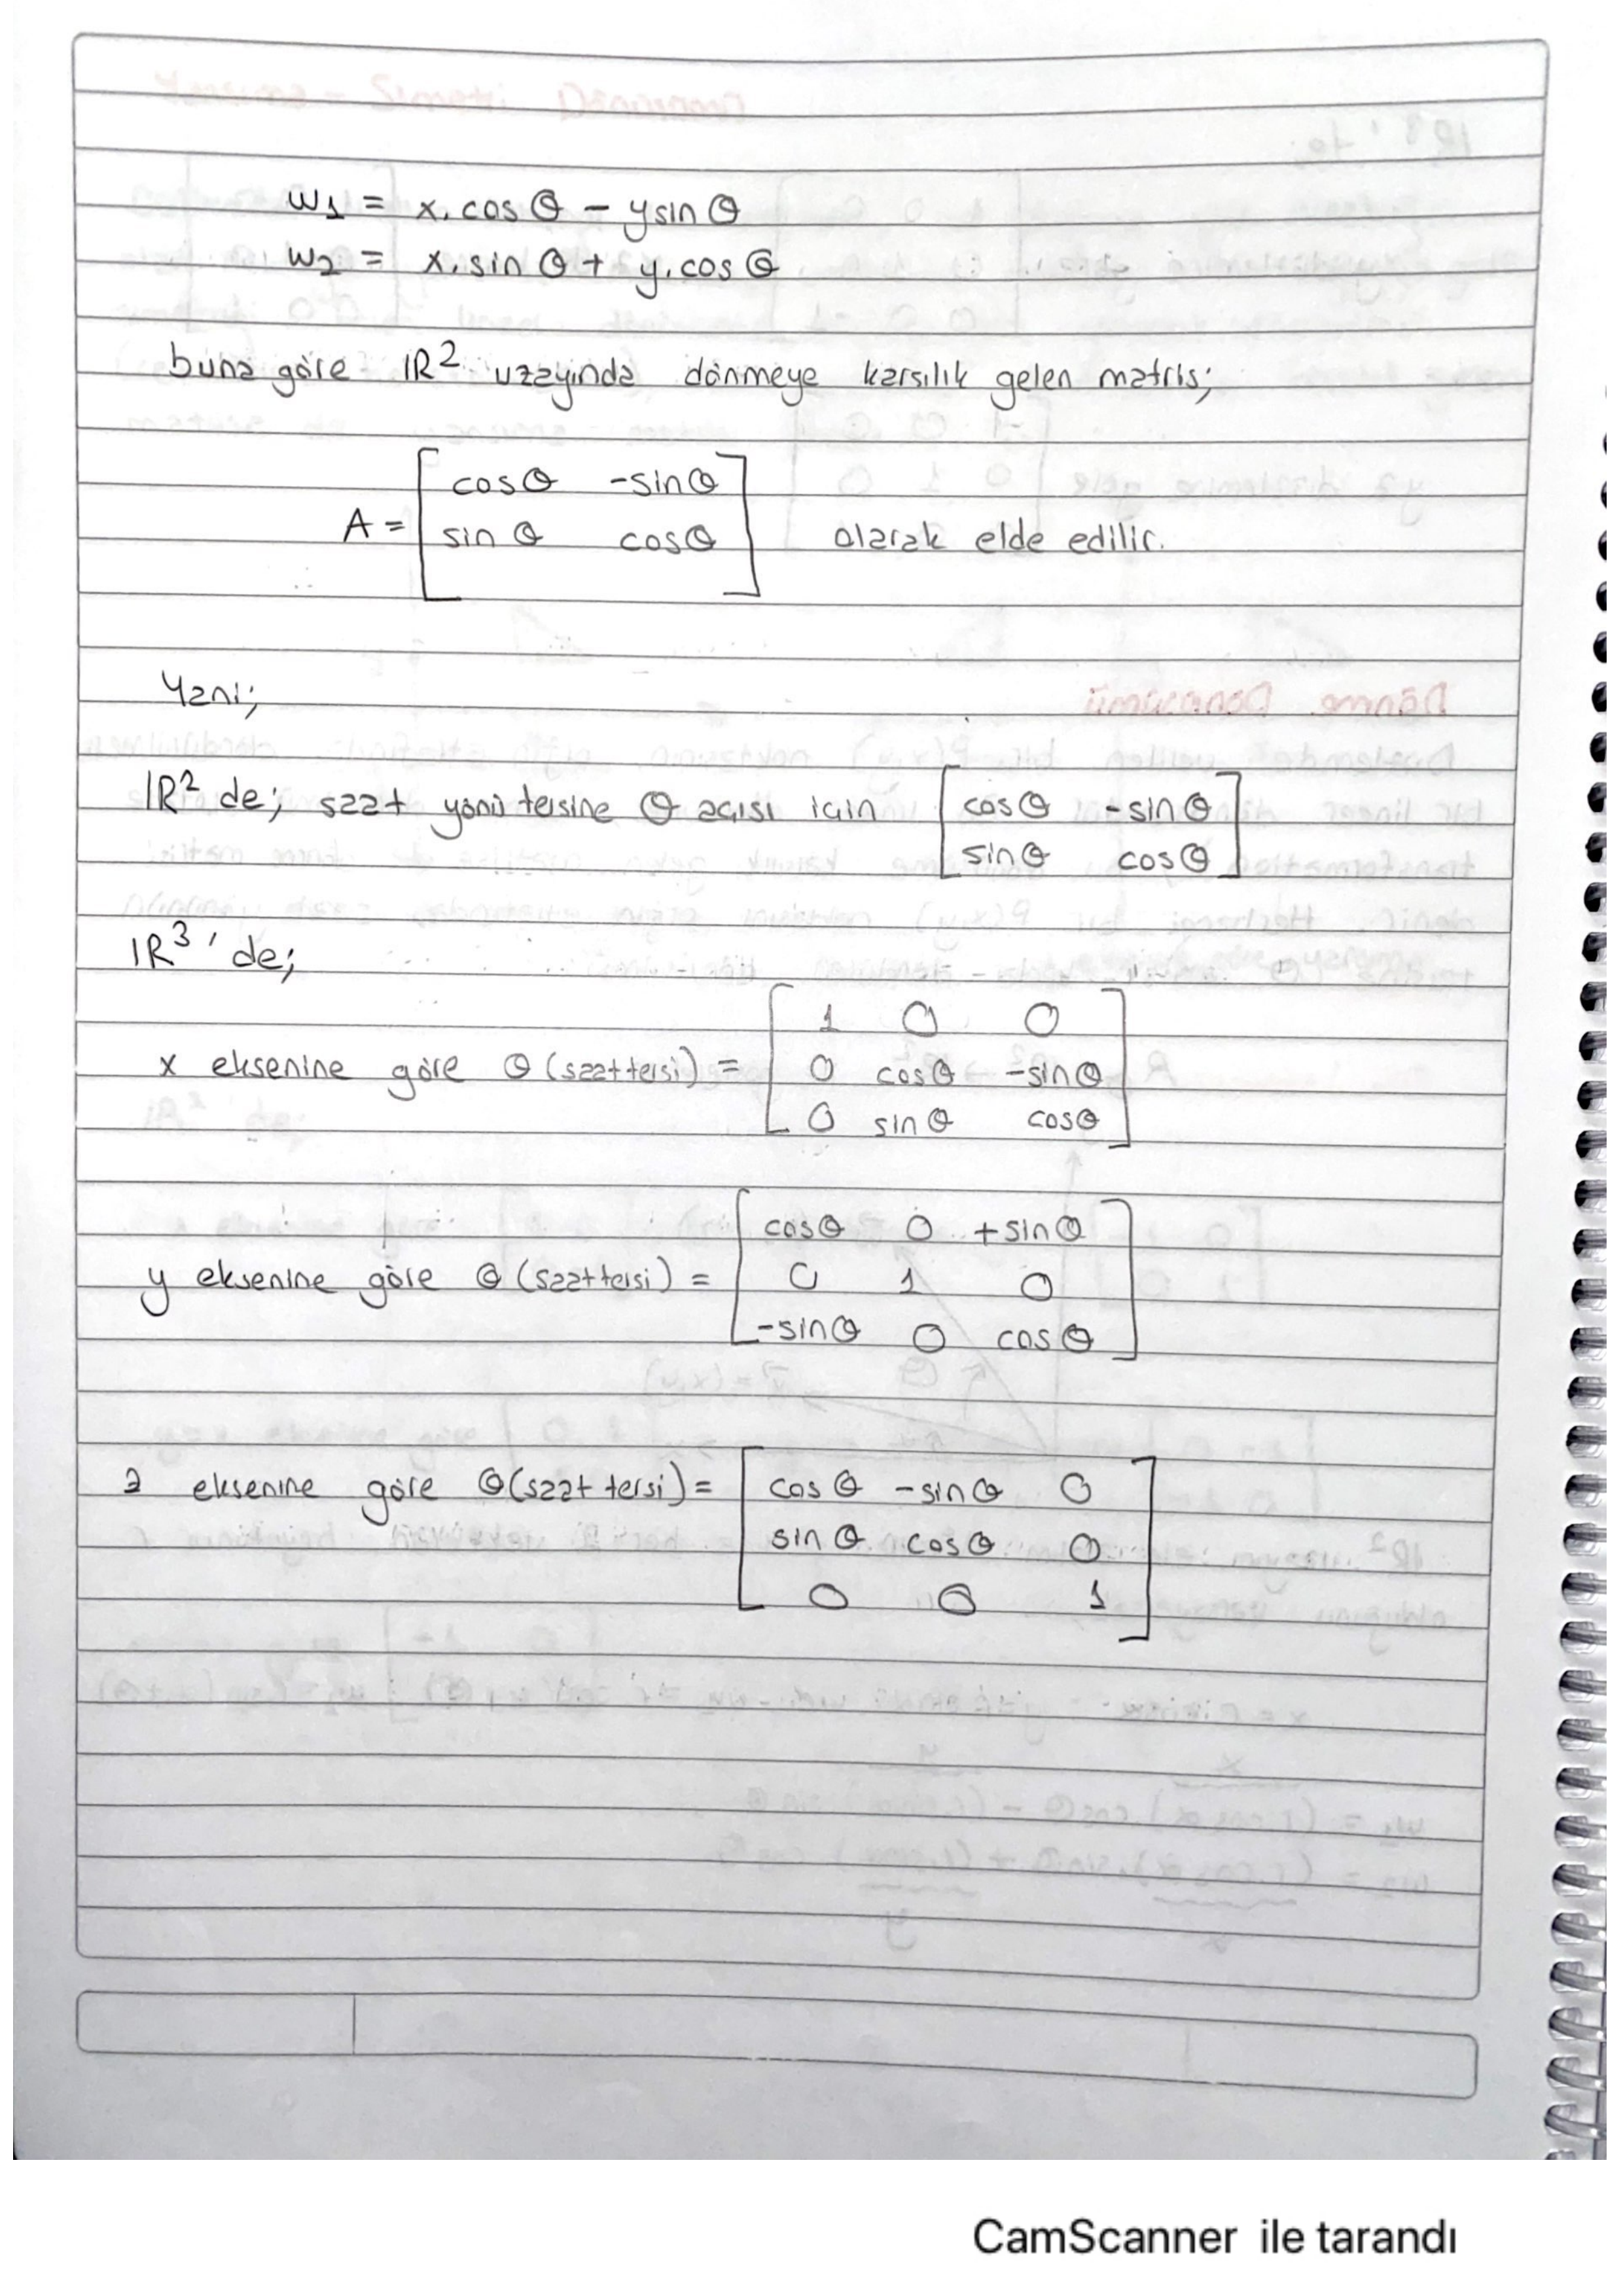 w1 = x.cosθ - ysinθ
w2 = x.sinθ + y.cosθ
buna göre IR² uzayında dönmeye karsılık gelen matris;
cosθ -sinθ
A = sinθ cosθ olarak elde edilir.
Yani;
IR² de; saat yönü tersine θ açısı için cosθ -sinθ
sinθ cosθ
IR³' de;
1 0 0
x eksenine göre θ (saat tersi) = 0 cosθ -sinθ
0 sinθ cosθ
cosθ 0 +sinθ
y eksenine göre θ (saat tersi) = 0 1 0
-sinθ 0 cosθ
z eksenine göre θ (saat tersi) = cosθ -sinθ 0
sinθ cosθ 0
0 0 1
CamScanner ile tarandı